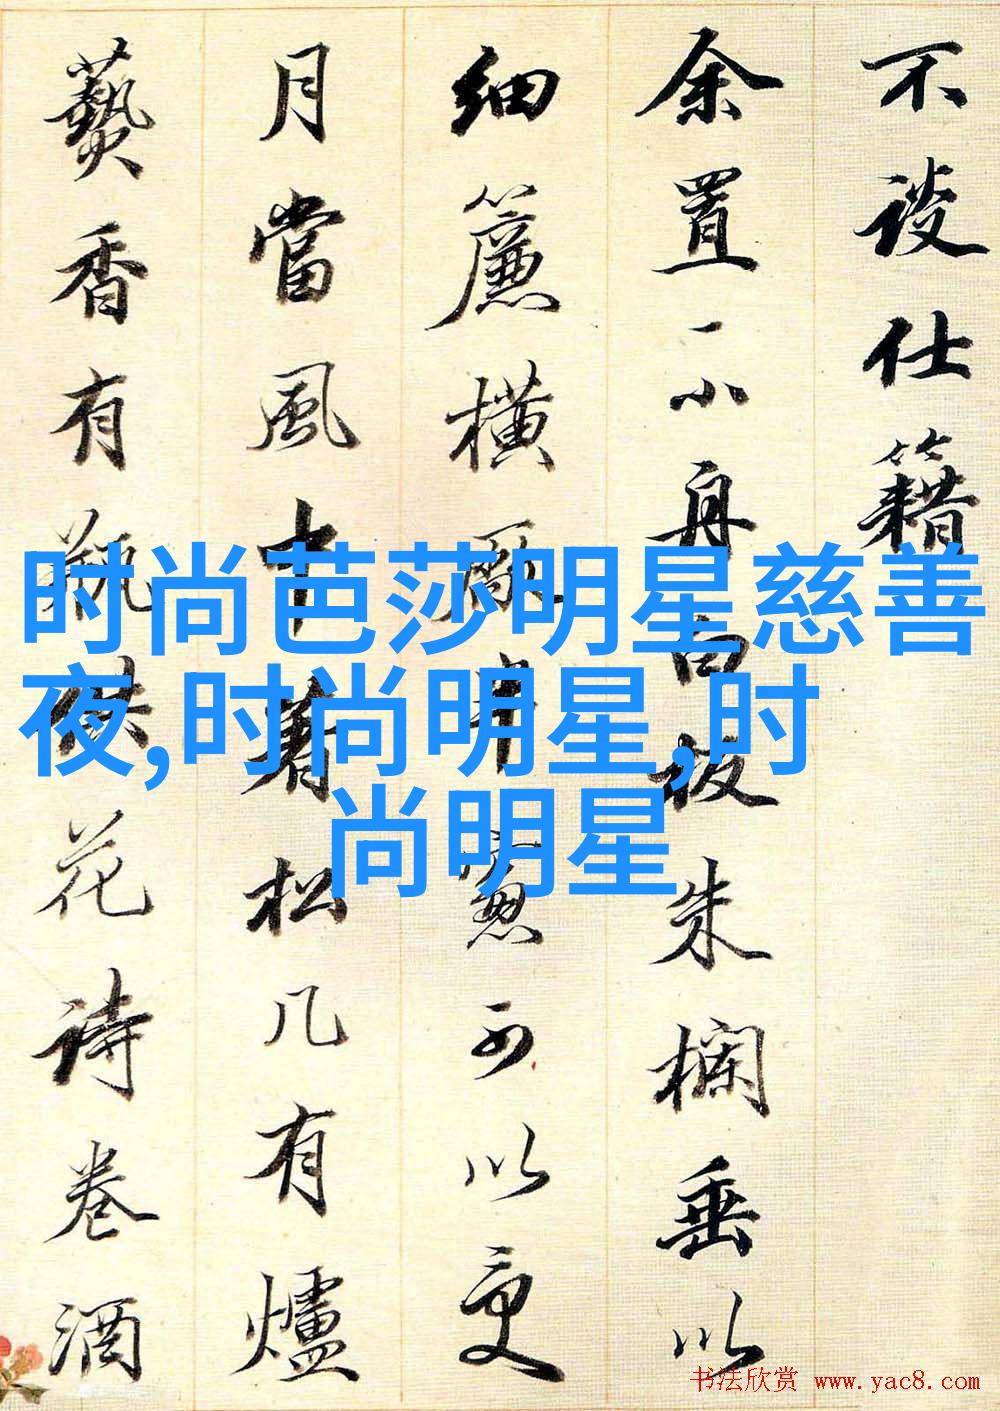 不談仕籍
余置一小舟白板朱欄垂以
細簾橫窻可以
月當風中着松几有爐
爇香有瓶供花詩卷酒
时尚芭莎明星慈善
夜,时尚明星,时
尚明星
书法欣赏 www.yac8.com